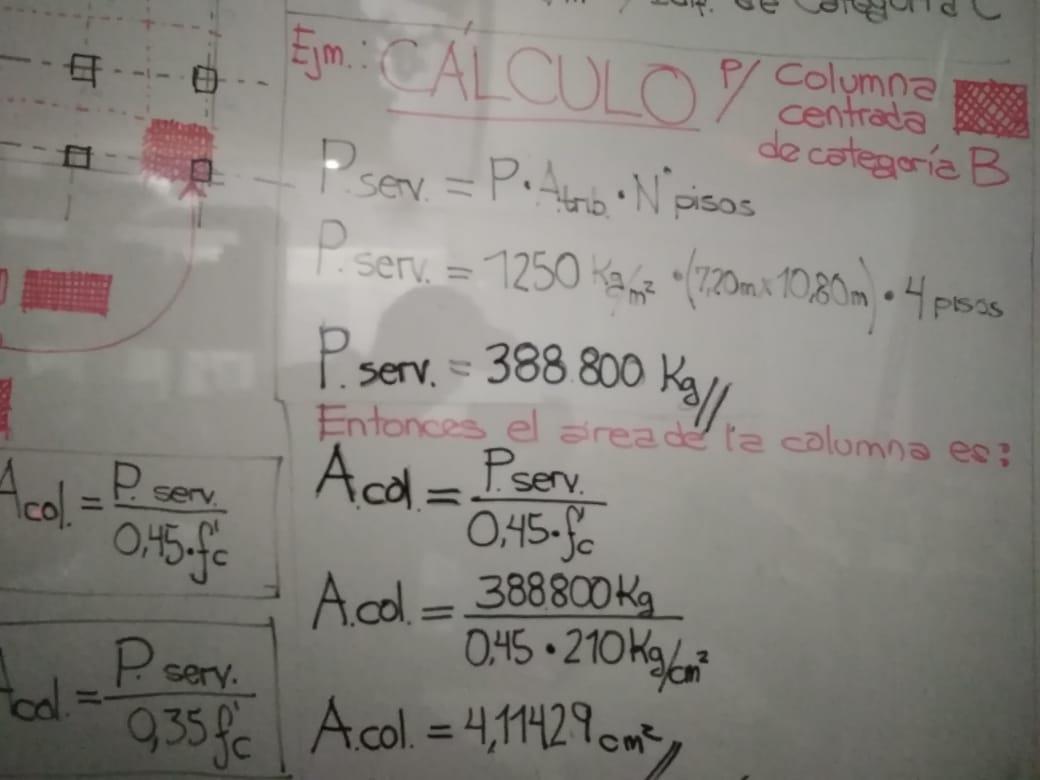 de Categoría C
Ejm.: CÁLCULO p/ Columna
centrada
de categoría B
P. serv. = P · A trib. · N° pisos
P. serv. = 1250 Kg/m² · (7,20m x 10,80m) · 4 pisos
P. serv. = 388.800 Kg//
Entonces el área de la columna es:
A.col. = P. serv. / 0,45 · f'c
A.col. = 388.800 Kg / 0,45 · 210 Kg/cm²
A.col. = 4,11429 cm²//
Acol. = P. serv. / 0,45 · f'c
Acol. = P. serv. / 0,35 f'c